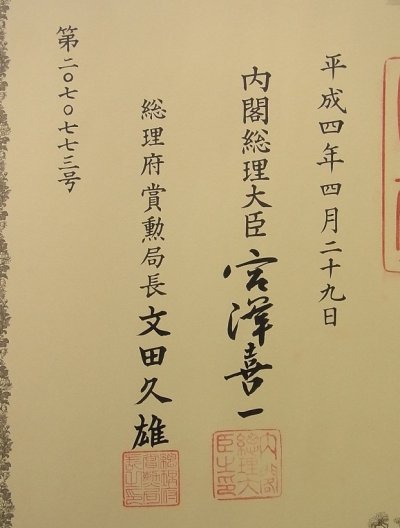 平成四年四月二十九日
内閣総理大臣 宮澤喜一
内閣総理大臣之印
総理府賞勲局長 文田久雄
総理府賞勲局長之印
第二〇七〇七七三号